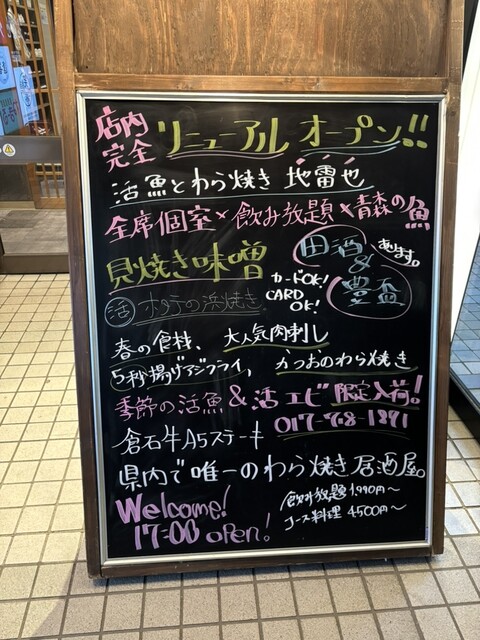 店内
完全
リニューアル オープン!!
活魚とわら焼き 地雷也
全席個室×飲み放題×青森の魚
貝焼き味噌
田酒
&
豊盃
あります。
カードOK!
CARD
OK!
活 ホタテの浜焼き
春の食材、 大人気肉刺し
5秒揚げアジフライ, かつおのわら焼き
季節の活魚&活エビ限定入荷!
倉石牛A5ステーキ
県内で唯一のわら焼き居酒屋。
飲み放題 1,990円〜
コース料理 4500円〜
Welcome!
17:00 open!